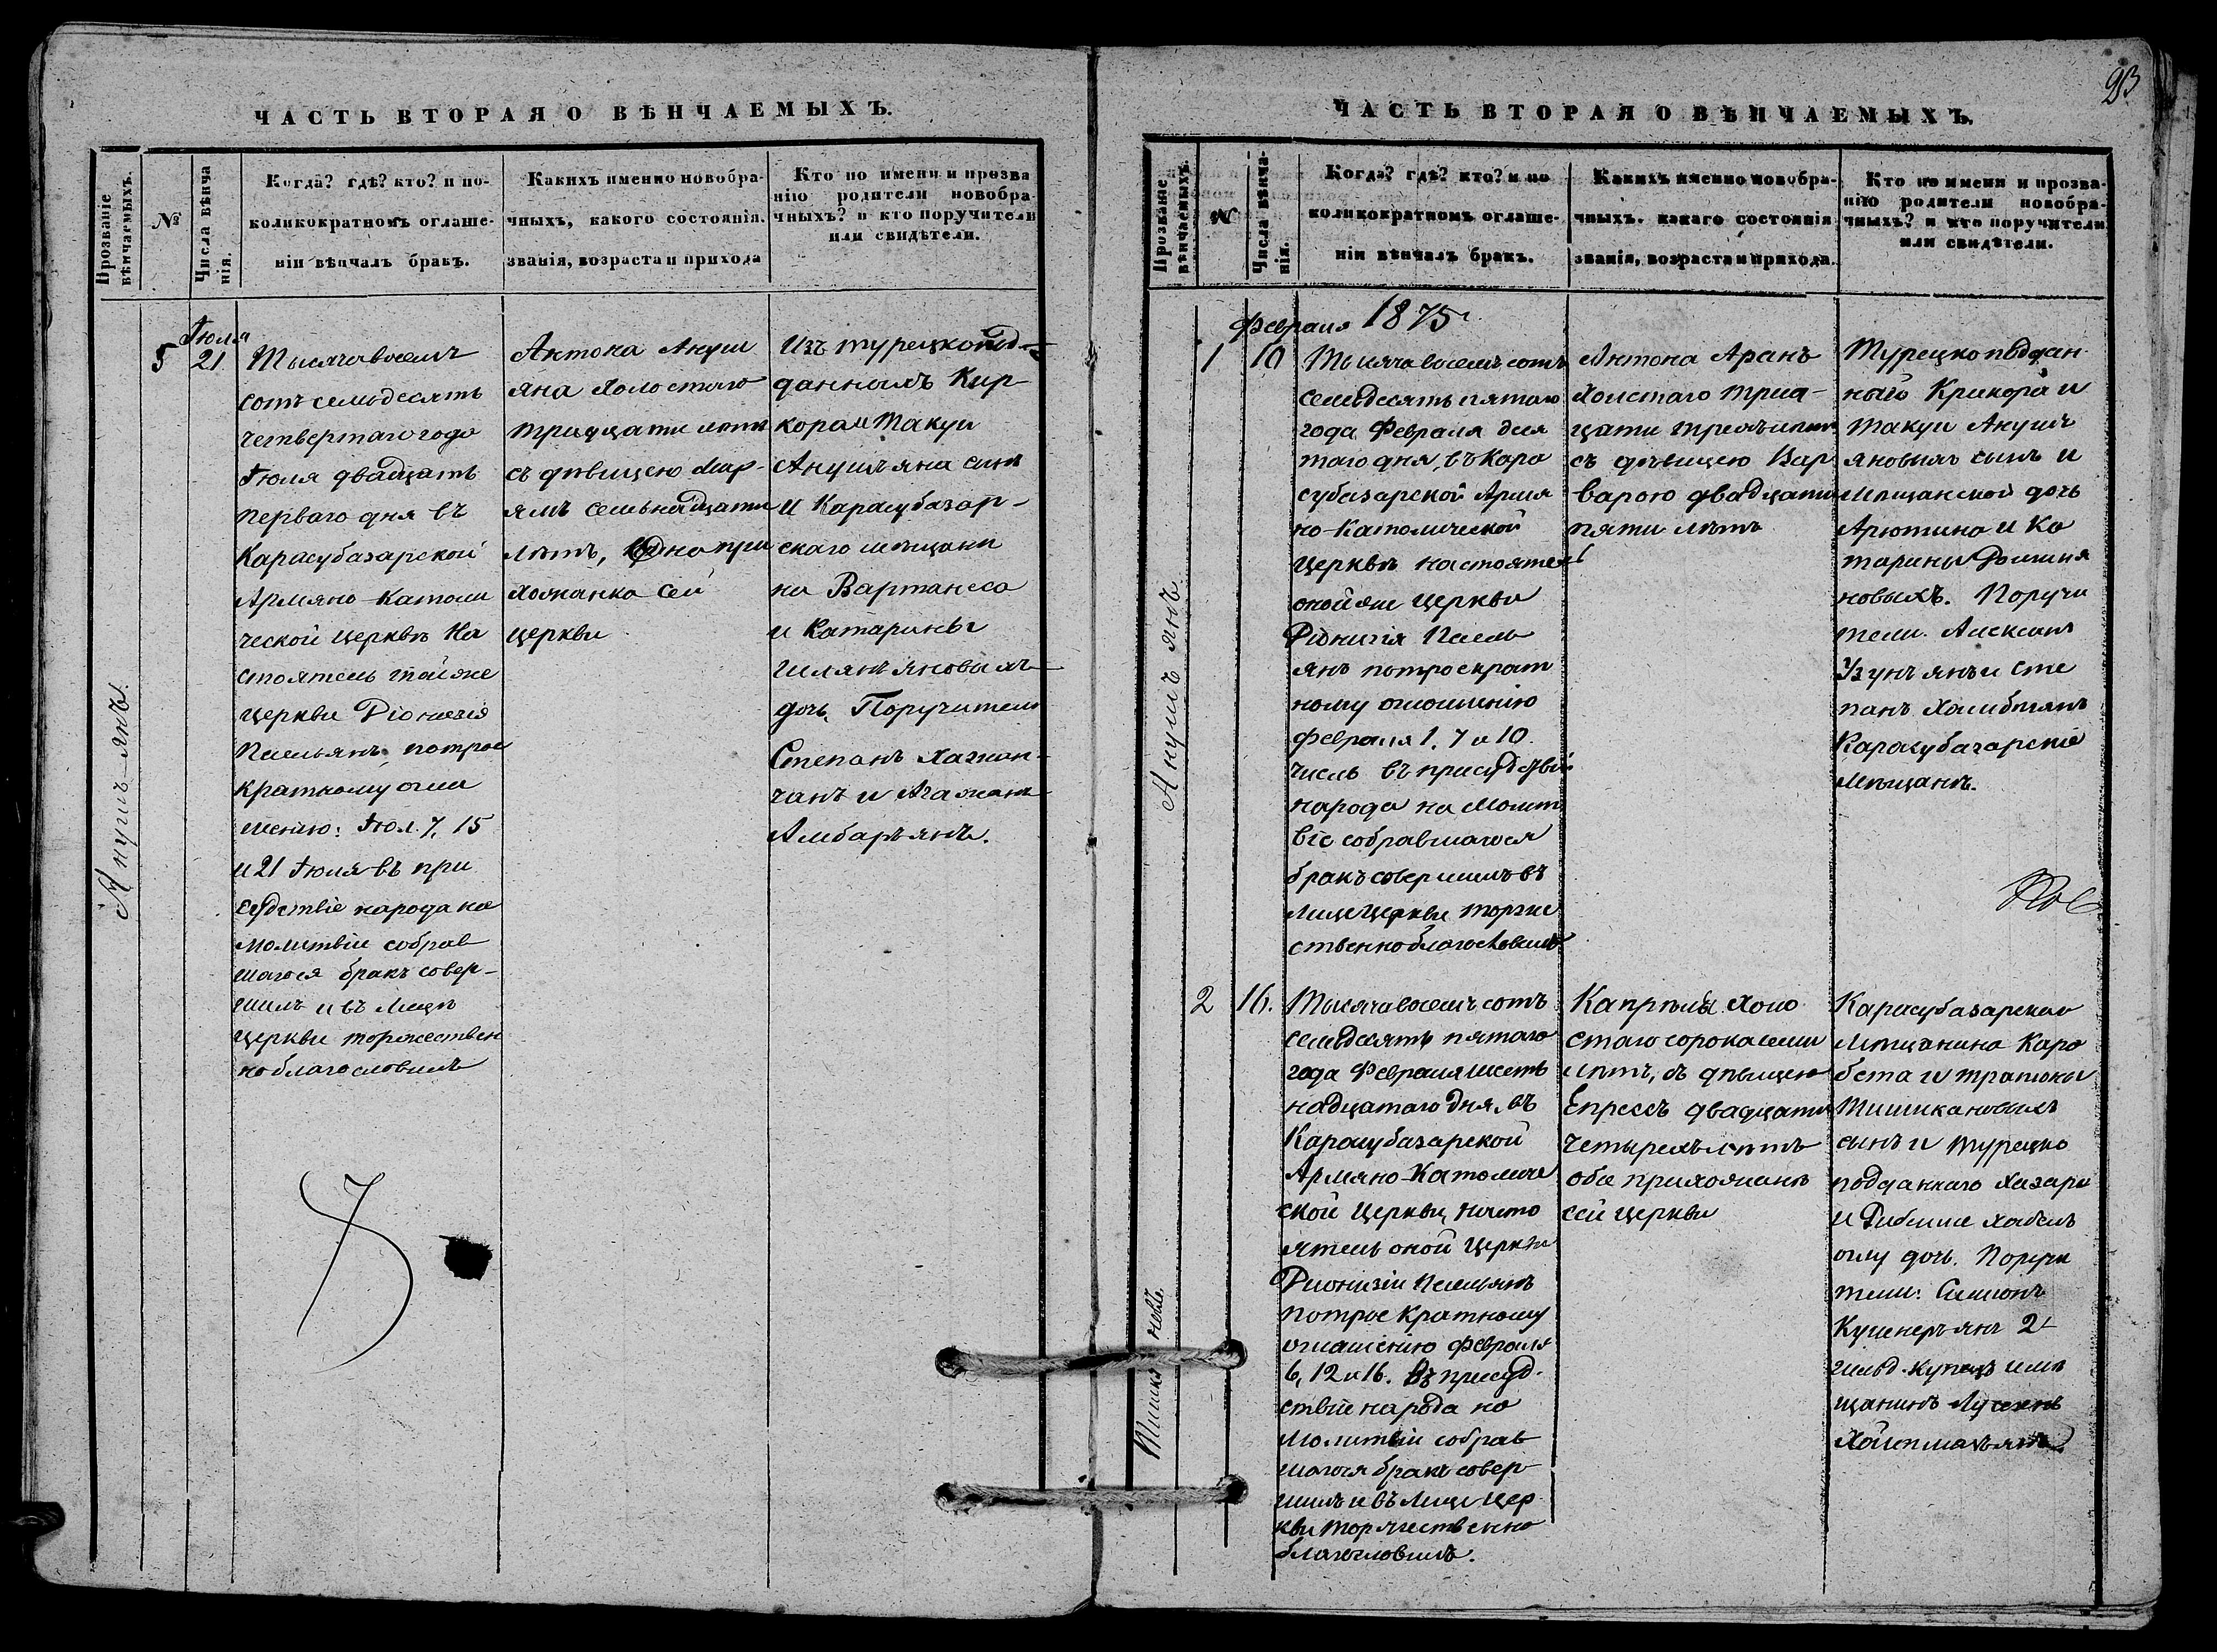 ЧАСТЬ ВТОРАЯ О ВѢНЧАЕМЫХЪ.
Прозваніе вѣнчаемыхъ.
№
Числа вѣнчанія.
Когда? гдѣ? кто? и по-
коликократномъ оглаше-
ніи вѣнчалъ бракъ.
Какихъ именно новобра-
чныхъ, какого состоянія.
званія, возраста и прихода
Кто по имени и прозва
нію родители новобра-
чныхъ? и кто поручители
или свидѣтели.
Анушъ-янъ.
5
Іюля
21
Тысяча восемъ
сотъ семьдесятъ
четвертаго года
Іюля двадцать
перваго дня въ
Карасубазарской
Армяно-Католи
ческой церквѣ На
стоятель той же
церкви Діонизія
потрое
кратному огла
шенію: Іюл. 7, 15
и 21 Іюля въ при
судствіе народа на
молитвіи собрав
шагося бракъ совер-
шилъ и въ лицѣ
церкви торжествен
но благословилъ
Антона Ануш
яна холостаго
тридцати лѣтъ
съ дѣвицею Мар-
ямъ семьнадцати
лѣтъ, Одна при
хожанка сей
церкви
Изъ турецкопод-
данныхъ Кир-
кора и Такуи
Анушъяна сынъ
и Карасубазар-
скаго мѣщани
на Вартанеса
и Катарины
дочь. Поручители
Степанъ
чанъ и
Амбаръянъ.
ЧАСТЬ ВТОРАЯ О ВѢНЧАЕМЫХЪ.
Прозваніе вѣнчаемыхъ.
№
Числа вѣнча-
нія.
Когда? гдѣ? кто? и по
коликократномъ оглаше-
ніи вѣнчалъ бракъ.
Какихъ именно новобра-
чныхъ. какаго состоянія
званія, возраста и прихода.
Кто по имени и прозва-
нію родители новобра-
чныхъ? и кто поручители
или свидѣтели.
Анушъ янъ.
Февраля 1875 г.
1
10
Тысяча восемъ сотъ
семьдесятъ пятаго
года Февраля деся
таго дня, въ Кара
субазарской Армя
но-Католической
церквѣ настоятель
оной же церкви
Діонизія
янъ потроекрат
ному оглошенію
Февраля 1, 7 и 10
числъ въ присудствіи
народа на Молит
віе собравшагося
бракъ совершилъ въ
лицѣ церкви торже
ственно благословилъ
Антона Аранъ
Холстаго трид-
цати трехъ лѣтъ
съ дѣвицею Вар
варою двадцати
пяти лѣтъ
Турецко поддан
наго Крикора и
Такуи Анушъ
яновыхъ сынъ и
Мѣщанской дочь
Арютина и Ка
тарины
новыхъ. Поручи
тели. Алексанъ
Узунъянъ и Сте
панъ
Карасубазарскіе
Мѣщанъ.
2
16.
Тысяча восемъ сотъ
семьдесятъ пятаго
года Февраля шест
надцатаго дня, въ
Карасубазарской
Армяно-Католиче
ской Церкви, насто
ятель оной Церкви
Дионизіи
потрое кратному
оглашенію Февраля
6, 12 и 16. Въ присуд-
ствіе народа на
молитвіи собрав
шагося бракъ совер-
шилъ и въ лицѣ цер
кви торжественно
благословилъ.
Капрѣла Холо
стаго сорока семи
лѣтъ, съ дѣвицею
Епрексъ двадцати
четырехъ лѣтъ
обе прихожане
сей церкви
Карасубазарскаго
Мѣщанина Кара
бета и
сынъ и турецко
подданнаго Хазара
и
оглу дочь. Поручи
тели: Симонъ
Кушнеръянъ 2й
гильд. купецъ и мѣ
щанинъ